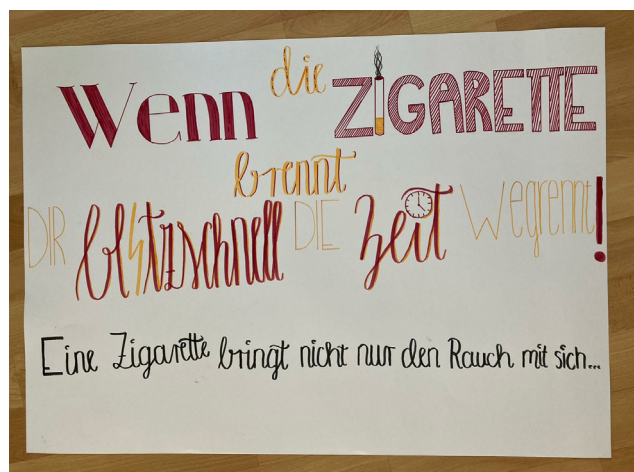 Wenn die ZIGARETTE
brennt
DIR blitzschnell DIE Zeit Wegrennt!
Eine Zigarette bringt nicht nur den Rauch mit sich...